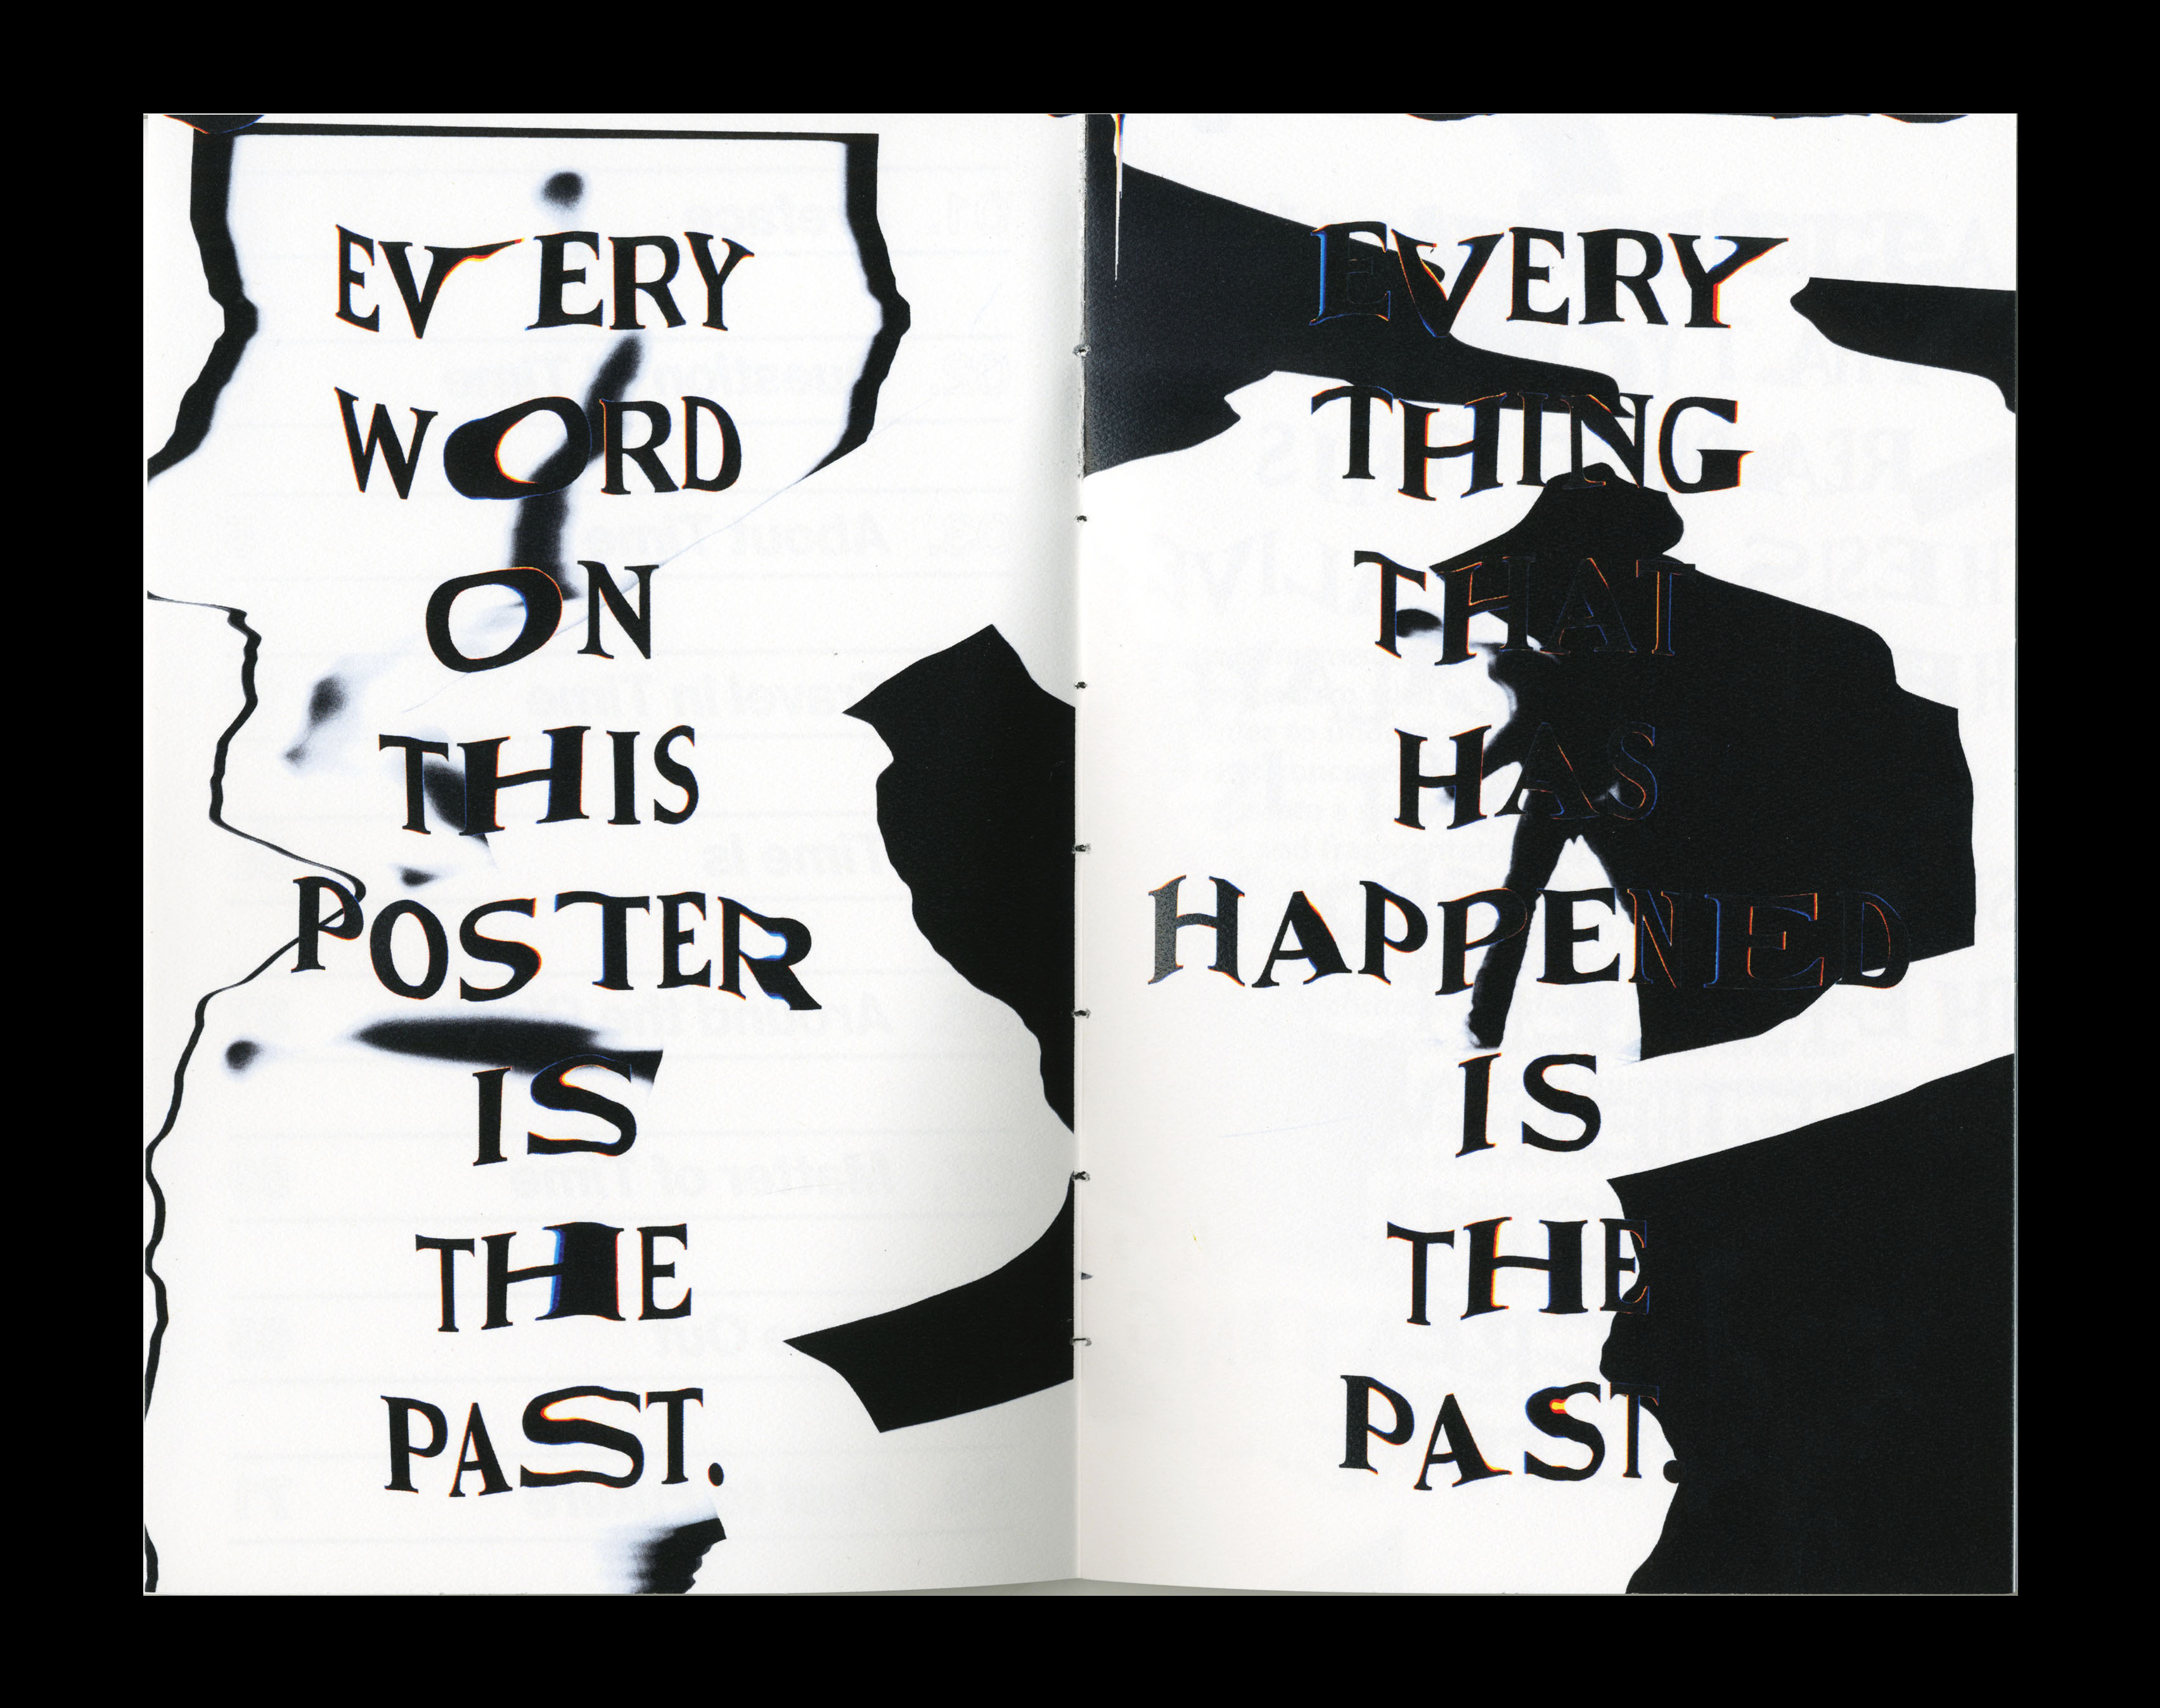 EVERY
WORD
ON
THIS
POSTER
IS
THE
PAST.
EVERY
THING
THAT
HAS
HAPPENED
IS
THE
PAST.